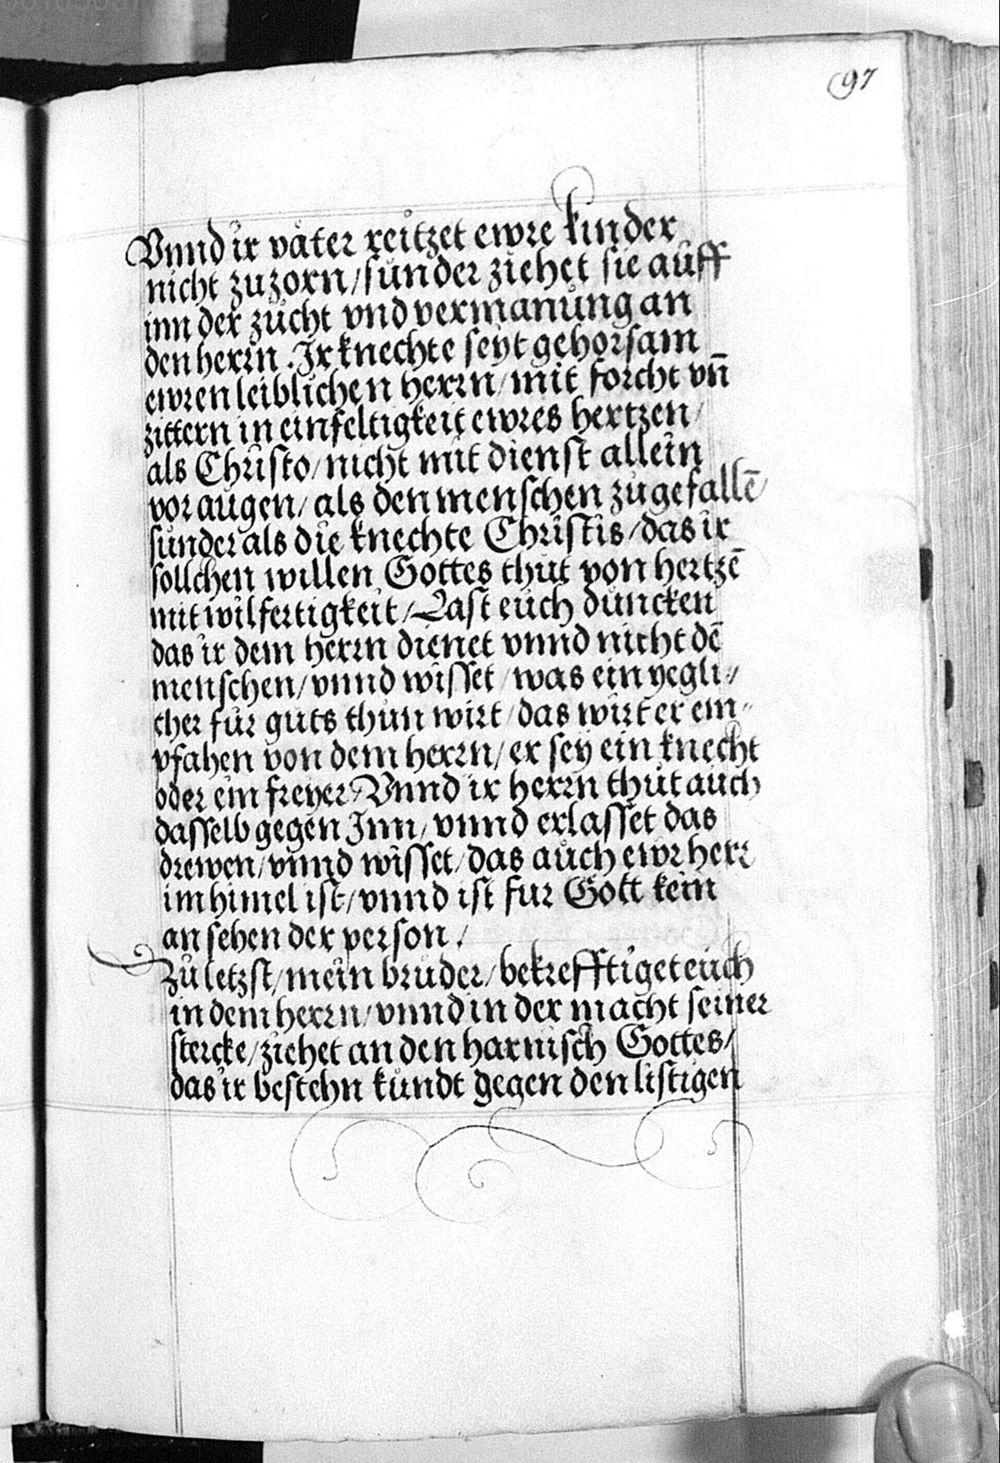 97
Vnnd ir väter reitzet ewre kinder
nicht zu zorn / sunder ziehet sie auff
inn der zucht vnd vermanung an
den herrn. Ir knechte seyt gehorsam
ewren leiblichen herrn / mit forcht vn̄
zittern in einfeltigkeit ewres hertzen /
als Christo / nicht mit dienst allein
vor augen / als den menschen zu gefallē /
sunder als die knechte Christis / das ir
sollchen willen Gottes thut von hertzē
mit wilfertigkeit / Last euch duncken
das ir dem herrn dienet vnnd nicht dē
menschen / vnnd wisset / was ein yegli-
cher für guts thun wirt / das wirt er em-
pfahen von dem herrn / er sey ein knecht
oder ein freyer / Vnnd ir herrn thut auch
dasselb gegen Inn / vnnd erlasset das
drewen / vnnd wisset / das auch ewr herr
im himel ist / vnnd ist fur Gott kein
an sehen der person /
Zu letzst / mein bruder / bekrefftiget euch
in dem herrn / vnnd in der macht seiner
stercke / ziehet an den harnisch Gottes /
das ir bestehn kundt gegen den listigen